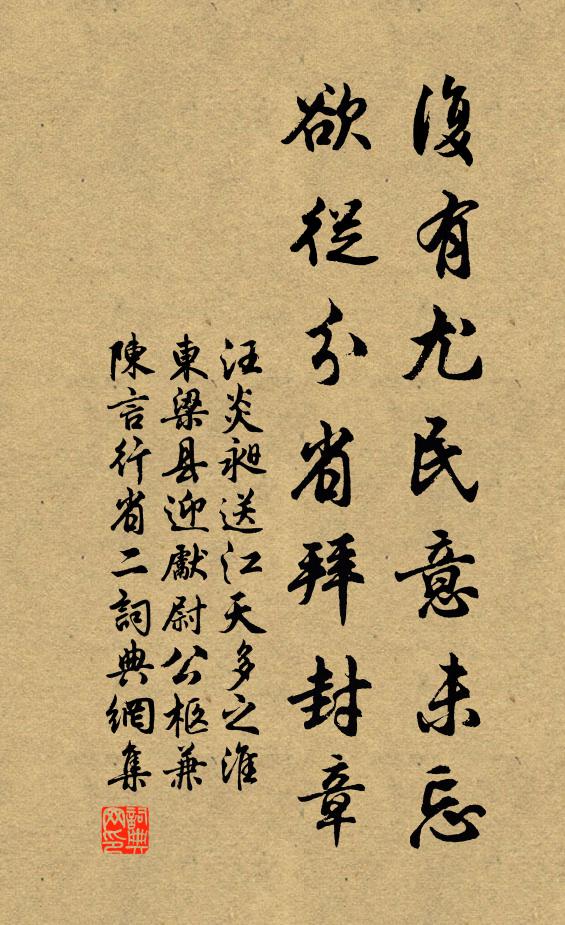 復有尤民意未忘
欲從分省拜封章
汪炎昶送江天多之淮
東梁县迎獻尉公柩兼
陳言行省二詞典網集
詞典网印